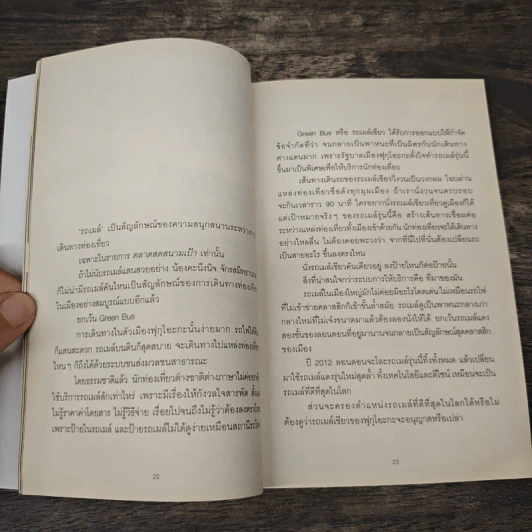 'รถเมล์' เป็นสัญลักษณ์ของความสนุกสนานระหว่างการ
เดินทางท่องเที่ยว
เฉพาะในรายการ ตลาดสดสนามเป้า เท่านั้น
ถ้าไม่นับรถเมล์แสนสวยอย่าง น้องคะนึงนิจ จักรสมิทธานนท์
ก็ไม่น่ามีรถเมล์คันไหนเป็นสัญลักษณ์ของการเดินทางท่องเที่ยว
ในเมืองอย่างสมบูรณ์แบบอีกแล้ว
ยกเว้น Green Bus
การเดินทางในตัวเมืองฟุกุโอะกะนั้นง่ายมาก รถไฟใต้ดิน
ก็แสนสะดวก รถเมล์บนดินก็สุดสบาย จะเดินทางไปแหล่งท่องเที่ยว
ไหนๆ ก็ถึงได้ด้วยระบบขนส่งมวลชนสาธารณะ
โดยธรรมชาติแล้ว นักท่องเที่ยวต่างชาติต่างภาษาไม่ค่อยกล้า
ใช้บริการรถเมล์สักเท่าไหร่ เพราะมีเรื่องให้กังวลใจสารพัด ตั้งแต่
ไม่รู้ราคาค่าโดยสาร ไม่รู้วิธีจ่าย เรื่อยไปจนถึงไม่รู้ว่าต้องลงตรงไหน
เพราะป้ายในรถเมล์ และป้ายรถเมล์ไม่ได้ดูง่ายเหมือนสถานีรถไฟ
22
Green Bus หรือ รถเมล์เขียว ได้รับการออกแบบให้กำจัด
ข้อจำกัดที่ว่า จนกลายเป็นพาหนะที่เป็นมิตรกับนักเดินทาง
ต่างแดนมาก เพราะรัฐบาลเมืองฟุกุโอะกะตั้งใจทำรถเมล์รุ่นนี้
ขึ้นมาเป็นพิเศษเพื่อให้บริการนักท่องเที่ยว
เส้นทางเดินรถของรถเมล์เขียววิ่งวนเป็นวงกลม โฉบผ่าน
แหล่งท่องเที่ยวชื่อดังทุกมุมเมือง ถ้าเรานั่งวนจนครบรอบ
จะกินเวลาราว 90 นาที ใครอยากนั่งรถเมล์เขียวดูเมืองก็ได้
แต่เป้าหมายจริงๆ ของรถเมล์รุ่นนี้คือ สร้างเส้นทางเชื่อมต่อ
ระหว่างแหล่งท่องเที่ยวทั้งเมืองเข้าด้วยกัน นักท่องเที่ยวจะได้เดินทาง
อย่างไหลลื่น ไม่ต้องคอยพะวงว่า จากที่นี่ไปที่นั่นต้องเปลี่ยนรถ
เป็นสายอะไร ขึ้นลงตรงไหน
นั่งรถเมล์เขียวคันเดียวอยู่ ลงป้ายไหนก็ต่อป้ายนั้น
สิ่งที่น่าสนใจกว่าระบบการให้บริการคือ ที่มาของมัน
รถเมล์ในเมืองใหญ่มักไม่ค่อยมีอะไรโดดเด่น ไม่เหมือนรถไฟ
ที่ไม่เข้าข่ายคลาสสิกก็เข้าขั้นล้ำสมัย รถเมล์ดูเป็นพาหนะกลางเก่า
กลางใหม่ที่ไม่เจ๋งขนาดมาแล้วต้องลองนั่งให้ได้ ยกเว้นรถเมล์แดง
สองชั้นของลอนดอนที่อยู่มานานจนกลายเป็นสัญลักษณ์สุดคลาสสิก
ของเมือง
ปี 2012 ลอนดอนจะโละรถเมล์รุ่นนี้ทิ้งทั้งหมด แล้วเปลี่ยน
มาใช้รถเมล์แดงรุ่นใหม่สุดล้ำ ทั้งเทคโนโลยีและดีไซน์ เหมือนจะเป็น
รถเมล์ที่ดีที่สุดในโลก
ส่วนจะครองตำแหน่งรถเมล์ที่ดีที่สุดในโลกได้หรือไม่
ต้องดูว่ารถเมล์เขียวของฟุกุโอะกะจะอนุญาตหรือเปล่า
23